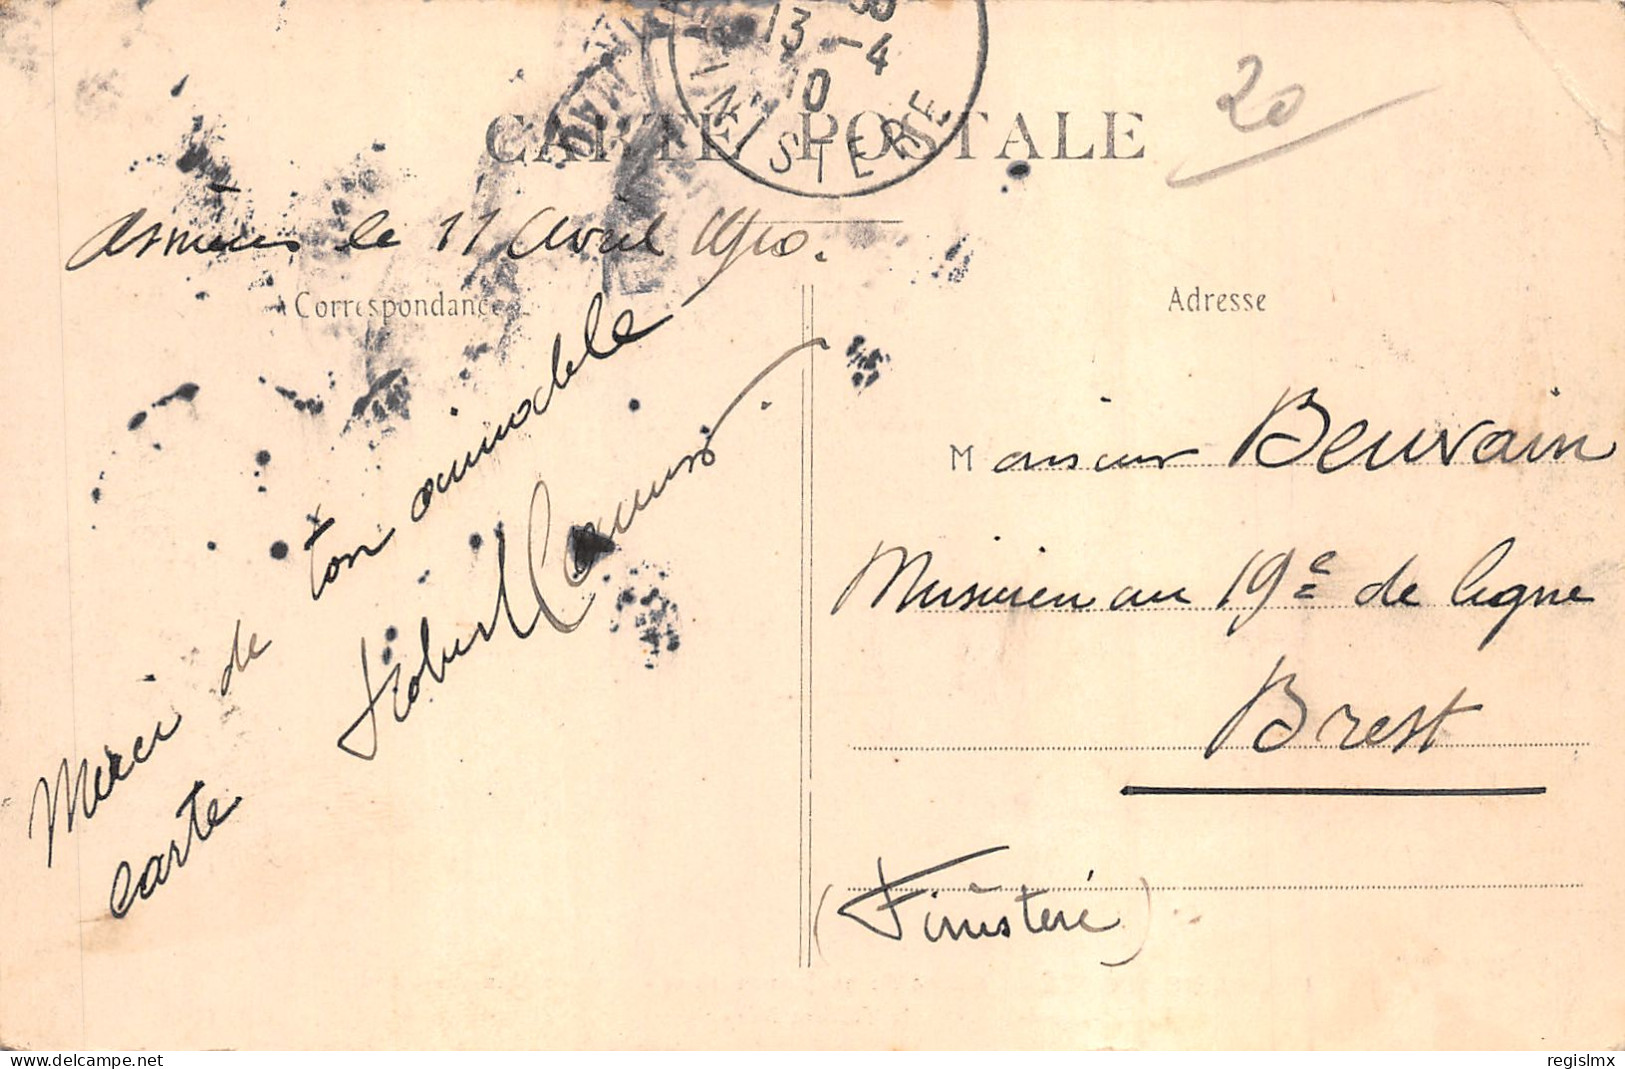 13 -4
10
FINISTERE
20
CARTE POSTALE
Asnières le 11 Avril 1910.
Correspondance
Adresse
Merci de ton aimable
carte
Robert Camus
Monsieur Beuvain
Musicien au 19e de ligne
Brest
(Finistère)
delcampe.net
regislmx